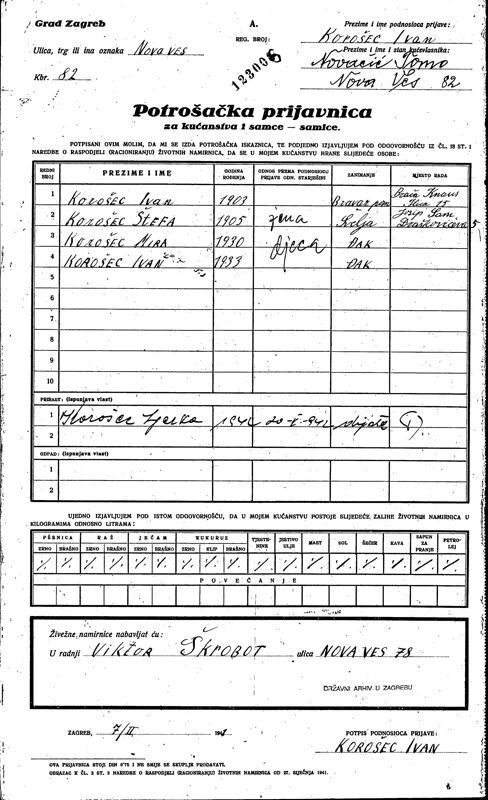 Grad Zagreb
Ulica, trg ili ina oznaka Nova ves
Kbr. 82
A.
REG. BROJ:
Prezime i ime podnosioca prijave:
Korošec Ivan
Prezime i ime i stan kućevlasnika:
Novačić Tomo
Nova Ves 82
Potrošačka prijavnica
za kućanstva i samce — samice.
POTPISANI OVIM MOLIM, DA MI SE IZDA POTROŠAČKA ISKAZNICA, TE PODJEDNO IZJAVLJUJEM POD ODGOVORNOŠĆU IZ ČL. 18 ST. 1
NAREDBE O RASPODJELI (RACIONIRANJU) ŽIVOTNIH NAMIRNICA, DA SE U MOJEM KUĆANSTVU HRANE SLIJEDEĆE OSOBE:
REDNI BROJ PREZIME I IME GODINA ROĐENJA ODNOS PREMA PODNOSIOCU PRIJAVE ODN. STARJEŠINI ZANIMANJE MJESTO RADA
1 Korošec Ivan 1903 Bravar Braća Knaus Ilica 15
2 Korošec Štefa 1905 žena Švelja Josip Sam. Draškovićeva 5
3 Korošec Mira 1930 djeca Đak
4 Korošec Ivan 1933 Đak
5
6
7
8
9
10
PRIRAST: (ispunjava vlast)
1 Korošec 1942 20-V-942 dijete
2
ODPAD: (ispunjava vlast)
1
2
UJEDNO IZJAVLJUJEM POD ISTOM ODGOVORNOŠĆU, DA U MOJEM KUĆANSTVU POSTOJE SLIJEDEĆE ZALIHE ŽIVOTNIH NAMIRNICA U
KILOGRAMIMA ODNOSNO LITRAMA:
PŠENICA RAŽ JEČAM KUKURUZ TJESTENINE JESTIVO ULJE MAST SOL ŠEĆER KAVA SAPUN ZA PRANJE PETROLEJ
ZRNO BRAŠNO ZRNO BRAŠNO ZRNO BRAŠNO ZRNO KLIP BRAŠNO
·/. ·/. ·/. ·/. ·/. ·/. ·/. ·/. ·/. ·/. ·/. ·/. ·/. ·/. ·/. ·/. ·/.
POVEĆANJE
Živežne namirnice nabavljat ću:
U radnji Viktor Škrobot ulica Nova Ves 78
DRŽAVNI ARHIV U ZAGREBU
ZAGREB, 7/II 1941
POTPIS PODNOSIOCA PRIJAVE:
Korošec Ivan
OVA PRIJAVNICA STOJI DIN 0'75 I NE SMIJE SE SKUPLJE PRODAVATI.
OBRAZAC K ČL. 2 ST. 3 NAREDBE O RASPODJELI (RACIONIRANJU) ŽIVOTNIH NAMIRNICA OD 27. SIJEČNJA 1941.